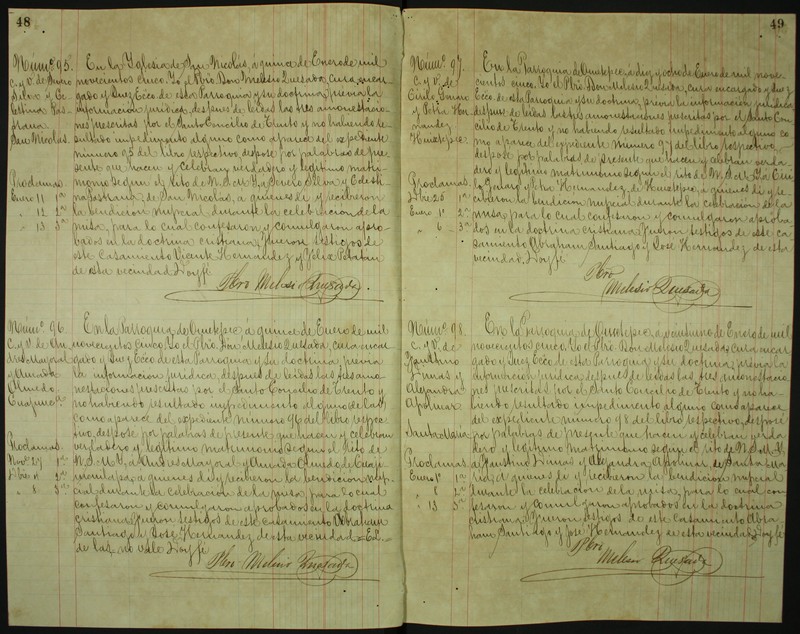 48
Númº 95.
C. y V. de
San Nicolas.
Proclamas.
Enero 11 1ª
" 12 2ª
" 13 3ª
En la Yglesia de San Nicolas, á quince de Enero de mil
novecientos cinco. Yo el Pbro. Don Melesio Quesada, cura encar-
gado y Juez Ecco. de esta Parroquia y su doctrina, previa la
informacion juridica, despues de leidas las tres amonestacio-
nes prescritas por el Santo Concilio de Trento y no habiendo re-
sultado impedimento alguno como aparece del expediente
número 95 del libro respectivo, desposé por palabras de pre-
sente que hacen y celebran verdadero y legítimo matri-
monio segun el Rito de N. S. M. Y. á
de San Nicolas, á quienes dí y recibieron
la bendicion nupcial durante la celebracion de la
misa, para lo cual confesaron y comulgaron apro-
bados en la doctrina cristiana. Fueron testigos de
este casamiento Vicente Hernandez y Felix
de esta vecindad. Doy fé.
Pbro Melesio Quesada.
Númº 96.
C. y V. de An-
drés Mayoral
y
Proclamas.
Nov. 27 1ª
Dbre. 4 2ª
" 8 3ª
En la Parroquia de á quince de Enero de mil
novecientos cinco. Yo el Pbro. Don Melesio Quesada, cura encar-
gado y Juez Ecco. de esta Parroquia y su doctrina previa
la informacion juridica despues de leidas las tres amo-
nestaciones prescritas por el Santo Concilio de Trento y
no habiendo resultado impedimento alguno de las
como aparece del expediente número 96 del libro respec-
tivo, desposé por palabras de presente que hacen y celebran
verdadero y legítimo matrimonio segun el Rito de
N. S. M. Y. á Andrés Mayoral y
á quienes dí y recibieron la bendicion nup-
cial durante la celebracion de la misa, para lo cual
confesaron y comulgaron aprobados en la doctrina
cristiana. Fueron testigos de este casamiento Abraham
Santiago y José Hernandez de esta vecindad. = Ed. =
de las no vale. Doy fé.
Pbro. Melesio Quesada
49
Númº 97.
C. y V. de
y Petra Her-
nandez
Proclamas.
Dbre. 25 1ª
Enero 1º 2ª
" 6 3ª
En la Parroquia de á diez y ocho de Enero de mil nove-
cientos cinco. Yo el Pbro. Don Melesio Quesada, cura encargado y Juez
Ecco. de esta Parroquia y su doctrina, previa la informacion juridica
despues de leidas las tres amonestaciones prescritas por el Santo Con-
cilio de Trento y no habiendo resultado impedimento alguno co-
mo aparece del expediente número 97 del libro respectivo,
desposé por palabras de presente que hacen y celebran verda-
dero y legítimo matrimonio segun el rito de N. S. M. Y. á
y Petra Hernandez de á quienes dí y re-
cibieron la bendicion nupcial durante la celebracion de la
misa, para lo cual confesaron y comulgaron aproba-
dos en la doctrina cristiana. Fueron testigos de este ca-
samiento Abraham Santiago y José Hernandez de esta
vecindad. Doy fé.
Pbro
Melesio Quesada
Númº 98.
C. y V. de
Faustino
y
Alejandra
Apolinar
Santa Maria.
Proclamas.
Enero 1º 1ª
" 8 2ª
" 13 3ª
En la Parroquia de á veintiuno de Enero de mil
novecientos cinco. Yo el Pbro. Don Melesio Quesada, cura encar-
gado y Juez Ecco. de esta Parroquia y su doctrina, previa la
informacion juridica despues de leidas las tres amonestacio-
nes prescritas por el Santo Concilio de Trento y no ha-
biendo resultado impedimento alguno como aparece
del expediente número 98 del libro respectivo, desposé
por palabras de presente que hacen y celebran verda-
dero y legítimo matrimonio segun el rito de N. S. M. Y.
á Faustino y Alejandra Apolinar, de Santa Ma-
ria, á quienes dí y recibieron la bendicion nupcial
durante la celebracion de la misa, para lo cual con-
fesaron y comulgaron aprobados en la doctrina
cristiana. Fueron testigos de este casamiento Abra-
ham Santiago y José Hernandez de esta vecindad. Doy fé.
Pbro.
Melesio Quesada